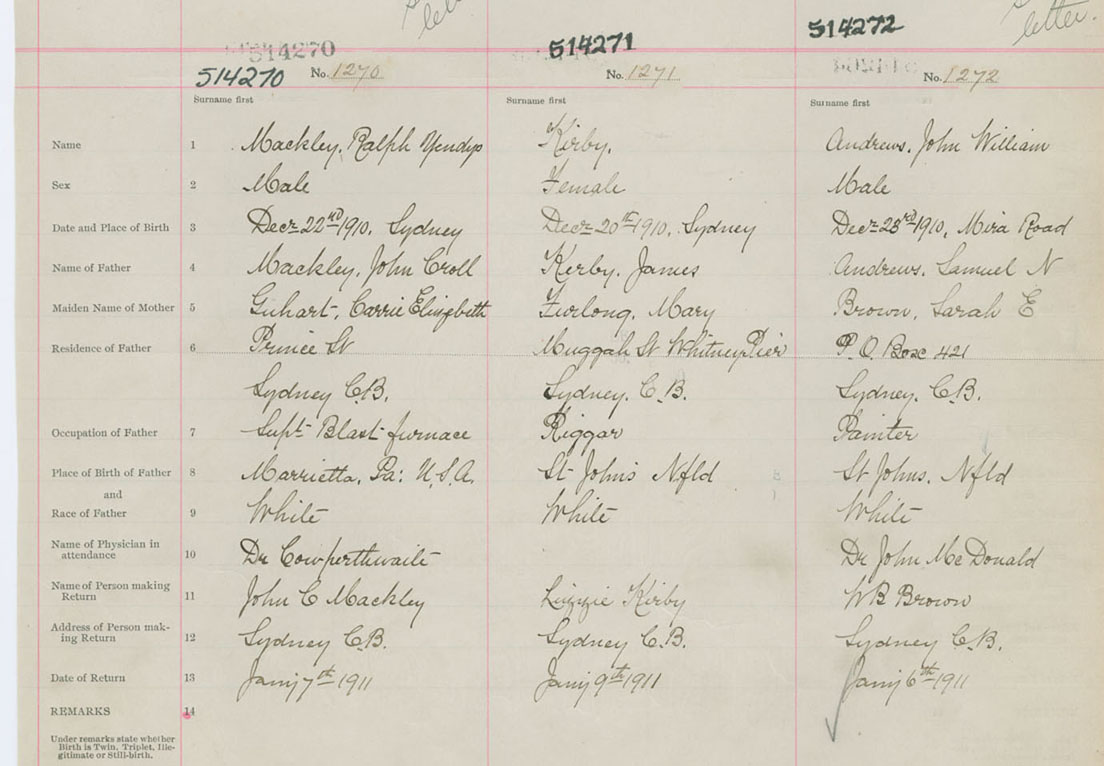 letter.
514270 514271 514272
514270 No. 1270 No. 1271 No. 1272
Surname first Surname first Surname first
Name 1 Mackley, Ralph Yendys Kirby, Andrews, John William
Sex 2 Male Female Male
Date and Place of Birth 3 Decr 22nd 1910, Sydney Decr 20th 1910, Sydney Decr 23rd 1910, Mira Road
Name of Father 4 Mackley, John Croll Kirby, James Andrews, Samuel N
Maiden Name of Mother 5 Carrie Elizabeth Furlong, Mary Brown, Sarah E
Residence of Father 6 Prince St Muggah St Whitney Pier P.O. Box 421
Sydney C.B. Sydney, C.B. Sydney, C.B.
Occupation of Father 7 Supt Blast furnace Riggar Painter
Place of Birth of Father 8 Marrietta, Pa: U.S.A. St John's Nfld St Johns, Nfld
and
Race of Father 9 White White White
Name of Physician in
attendance 10 Dr Cowperthwaite Dr John McDonald
Name of Person making
Return 11 John C Mackley Lizzie Kirby WB Brown
Address of Person mak-
ing Return 12 Sydney C.B. Sydney C.B. Sydney C.B.
Date of Return 13 Jany 7th 1911 Jany 9th 1911 Jany 6th 1911
REMARKS 14
Under remarks state whether
Birth is Twin, Triplet, Ille-
gitimate or Still-birth.